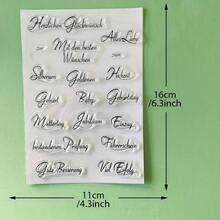 Herzlichen Glückwunsch
Alles Liebe
zur
Mit den besten
Wünschen
zum
Silbernen
Goldenen
Hochzeit
Geburt
Baby
Geburtstag
Muttertag
Jubiläum
Einzug
bestandenen Prüfung
Führerschein
Gute Besserung
Viel Erfolg
16cm
/6.3inch
11cm
/4.3inch